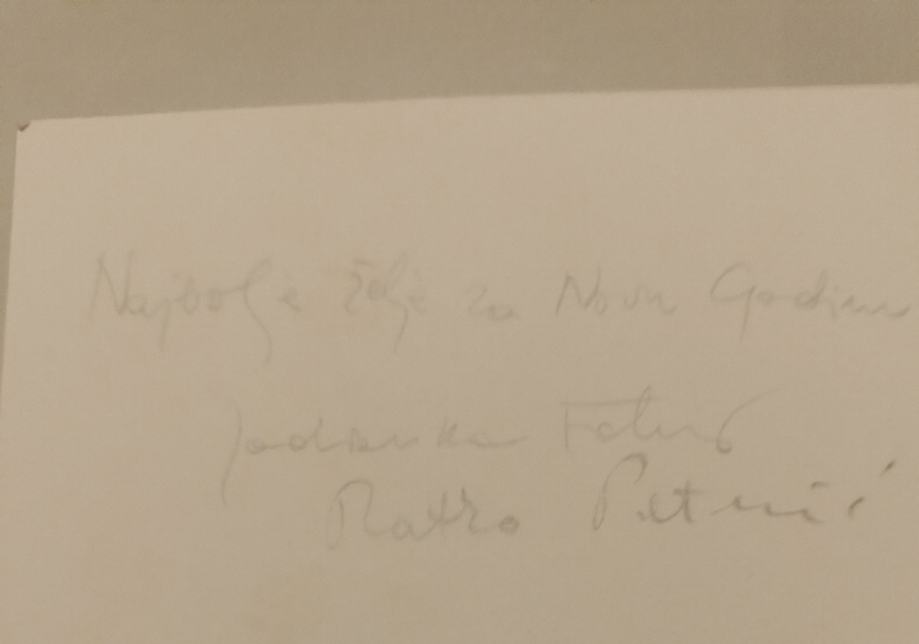 Najbolje želje za Novu Godinu
Jadranka
Ratko Petrić